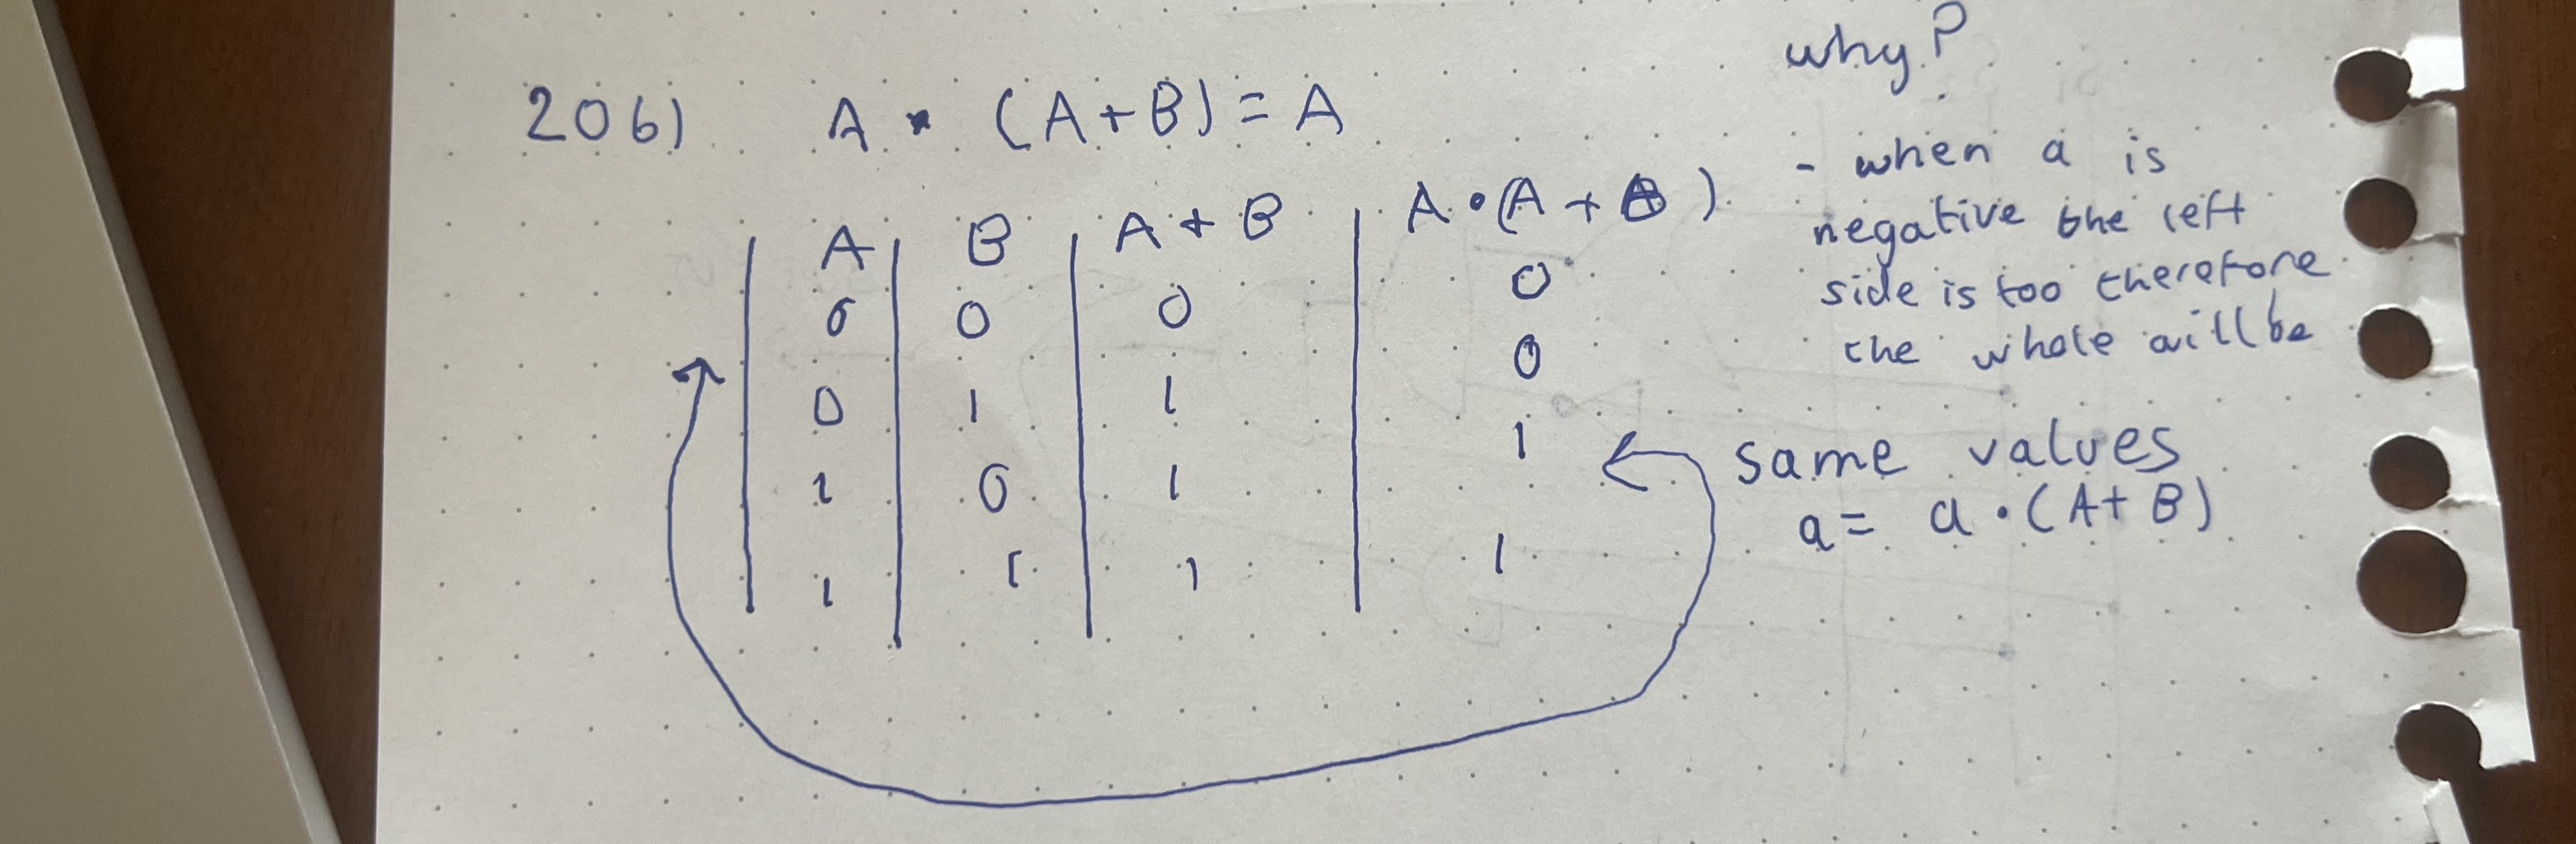 206) A • (A+B) = A
why?
A B A + B A • (A + B)
0 0 0 0
0 1 1 0
1 0 1 1
1 1 1 1
- when a is
negative the left
side is too therefore
the whole will be
same values
a = a • (A + B)